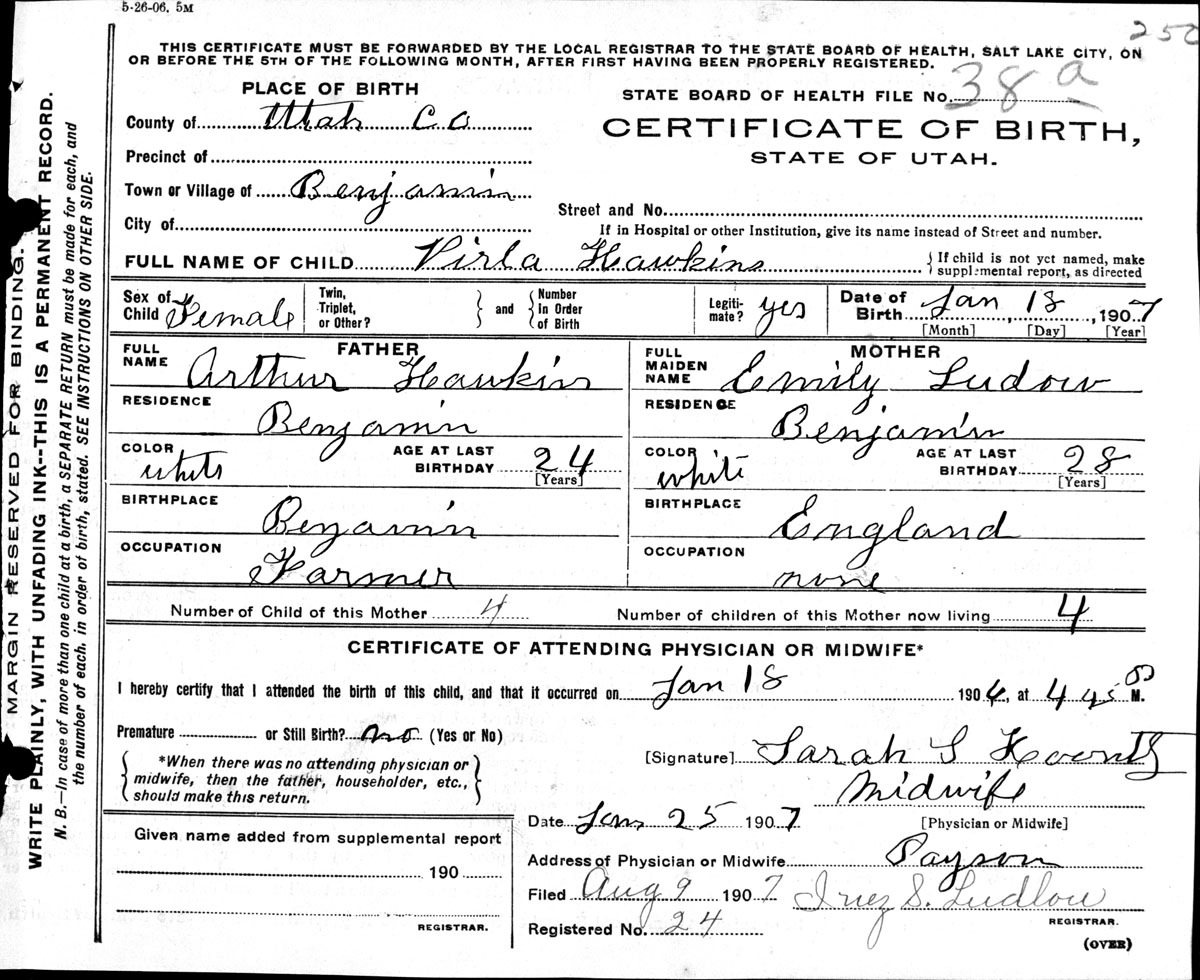 5-26-06. 5M
250
THIS CERTIFICATE MUST BE FORWARDED BY THE LOCAL REGISTRAR TO THE STATE BOARD OF HEALTH, SALT LAKE CITY, ON
OR BEFORE THE 5TH OF THE FOLLOWING MONTH, AFTER FIRST HAVING BEEN PROPERLY REGISTERED.
PLACE OF BIRTH
STATE BOARD OF HEALTH FILE NO. 38 a
County of Utah Co
CERTIFICATE OF BIRTH,
STATE OF UTAH.
Precinct of
Town or Village of Benjamin
Street and No.
City of
If in Hospital or other Institution, give its name instead of Street and number.
FULL NAME OF CHILD Virla Hawkins
{If child is not yet named, make
supplemental report, as directed
Sex of Child Female
Twin, Triplet, or Other?
} and {
Number In Order of Birth
Legiti-mate? yes
Date of Birth Jan, 18, 1907
[Month] [Day] [Year]
FATHER
FULL NAME Arthur Hawkins
RESIDENCE
Benjamin
COLOR white
AGE AT LAST BIRTHDAY 24
[Years]
BIRTHPLACE
Benjamin
OCCUPATION
Farmer
MOTHER
FULL MAIDEN NAME Emily Ludow
RESIDENCE
Benjamin
COLOR white
AGE AT LAST BIRTHDAY 28
[Years]
BIRTHPLACE
England
OCCUPATION
none
Number of Child of this Mother 4
Number of children of this Mother now living 4
CERTIFICATE OF ATTENDING PHYSICIAN OR MIDWIFE*
I hereby certify that I attended the birth of this child, and that it occurred on Jan 18 1904, at 4 45 P M.
Premature or Still Birth? no (Yes or No)
{*When there was no attending physician or
midwife, then the father, householder, etc.,
should make this return.}
[Signature] Sarah S Koontz
Midwife
[Physician or Midwife]
Date Jan 25 1907
Address of Physician or Midwife Payson
Filed Aug 9 1907 Inez S. Ludlow
REGISTRAR.
Registered No. 24
(OVER)
Given name added from supplemental report
190
REGISTRAR.
MARGIN RESERVED FOR BINDING.
WRITE PLAINLY, WITH UNFADING INK--THIS IS A PERMANENT RECORD.
N. B.—In case of more than one child at a birth, a SEPARATE RETURN must be made for each, and
the number of each. in order of birth, stated. SEE INSTRUCTIONS ON OTHER SIDE.